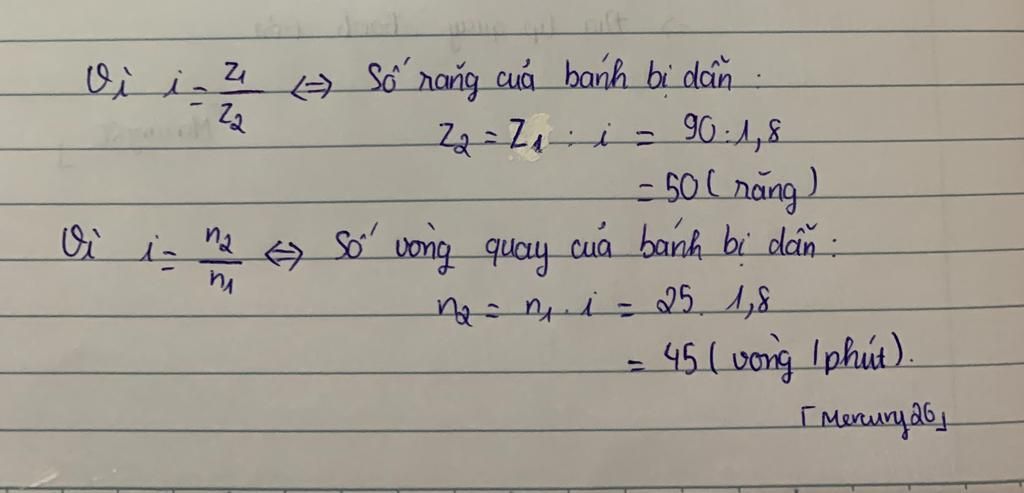 Vì i = Z1/Z2 ⇔ Số răng của bánh bị dẫn :
Z2 = Z1 : i = 90 : 1,8
= 50 ( răng )
Vì i = n2/n1 ⇔ Số vòng quay của bánh bị dẫn :
n2 = n1 . i = 25 . 1,8
= 45 ( vòng / phút ).
「Mercury26」